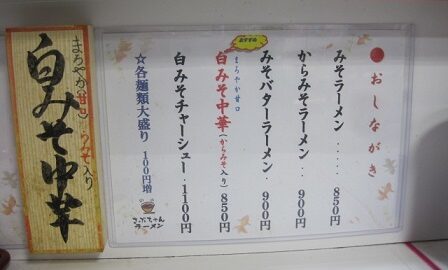 おしながき
みそラーメン････850円
からみそラーメン･･900円
みそバターラーメン･900円
おすすめ
まろやか甘口
白みそ中華(からみそ入り)850円
白みそチャーシュー･1100円
☆各麺類大盛り 100円増
さぶちゃん
ラーメン
まろやか(甘口)らみそ入り
白みそ中華